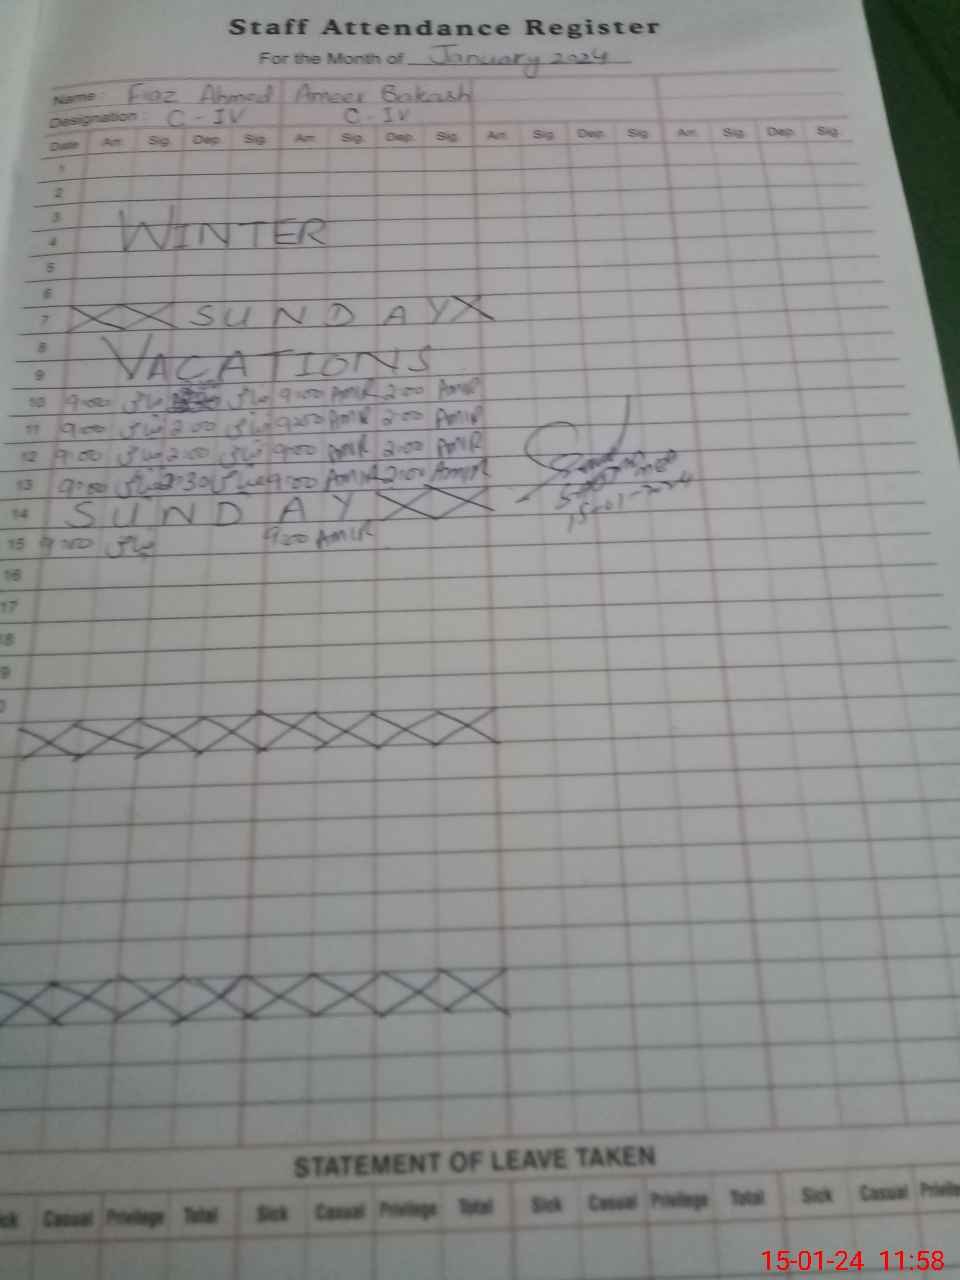 Staff Attendance Register
For the Month of January 2024
Name: Fiaz Ahmed Ameer Bakash
Designation: C - IV C - IV
Date Arr. Sig. Dep. Sig. Arr. Sig. Dep. Sig. Arr. Sig. Dep. Sig. Arr. Sig. Dep. Sig.
1
2
3
WINTER
4
5
6
7 SUNDAY
8
VACATIONS
9
10 9:00 9:00 AMIR 2:00 AMIR
11 9:00 2:00 9:00 AMIR 2:00 AMIR
12 9:00 2:00 9:00 AMIR 2:00 AMIR
13 9:00 2:30 9:00 AMIR 2:00 AMIR
15-01-2024
14 SUNDAY
15 9:00 9:00 AMIR
16
17
18
9
STATEMENT OF LEAVE TAKEN
ick Casual Privilege Total Sick Casual Privilege Total Sick Casual Privilege Total Sick Casual Privile
15-01-24 11:58